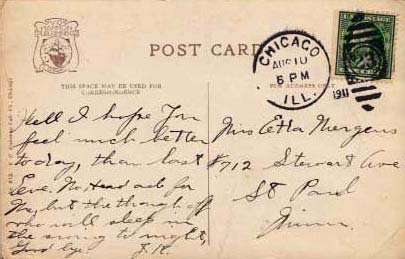 POST CARD
CHICAGO
AUG 10
6 PM
ILL.
1911
THIS SPACE MAY BE USED FOR
CORRESPONDENCE
FOR ADDRESS ONLY
Well I hope You
feel much better
today, than last
Eve. No Head ach for
Me, but the though off
who will sleep in
the swing to night,
Good bye. J.R.
Miss Etta Mergens
#712 Stewart Ave
St Paul
Minn.